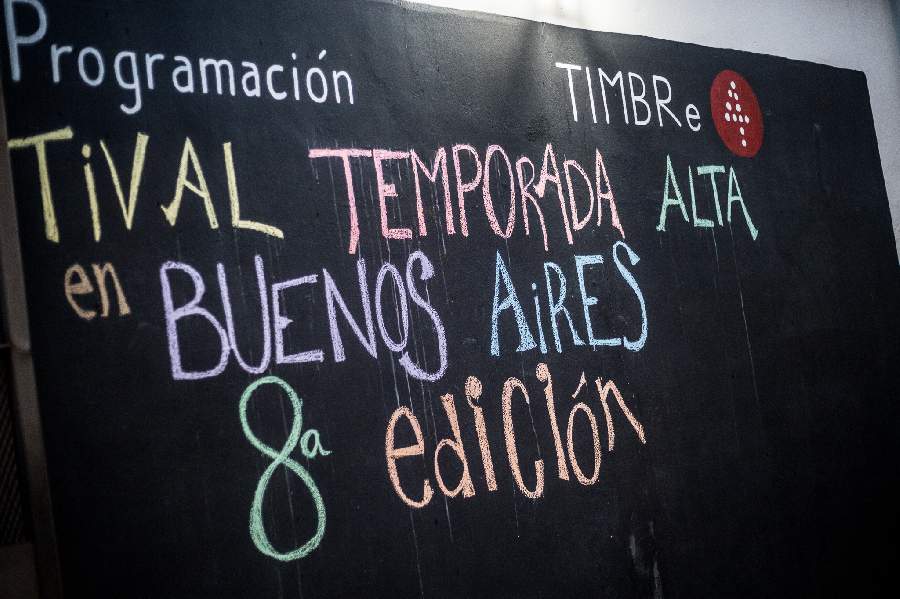 Programación TIMBRe 4
TiVAL TEMPORADA ALTA
en BUENOS AiRES
8ª edición